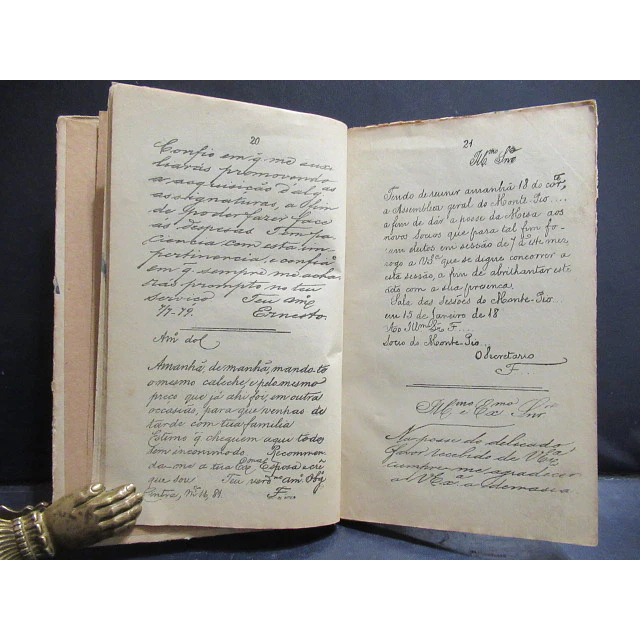 20
Confio em q. me auxi-
liarás promovendo
a acquisição d'alg.as
assignaturas, a fim
de poder fazer face
ás despezas Tem pa-
ciencia com esta im-
pertinencia e confia
em q. sempre me acha-
rás prompto no teu
serviço Teu am.º
7/7.79. Ernesto.
Am.º do C.
Amanhã, de manhã, mando-te
o mesmo caleche, e pelo mesmo
preço que já ahi foi, em outra
occasião, para que venhas de
tarde com tua familia
Estimo q. cheguem aqui todos
sem incommodo Recommen-
da-me a tua Ex.ma Esposa e crê
que sou Teu verd.ro am.º Obg.
F.
21
Ill.mo Snr.
Tendo de reunir amanhã 18 do cor.te,
a Assemblea geral do Monte-Pio....
a fim de dar a posse da Mesa aos
novos socios que para tal fim fo-
ram eleitos em sessão de 7 d'este mez,
rogo a V.S.ª que se digne concorrer a
esta sessão, a fim de abrilhantar este
acto com a sua presença.
Sala das Sessões do Monte-Pio...
em 15 de Janeiro de 18
Ao Ill.mo Sr. F....
Socio do Monte-Pio...
O Secretario
F...
Ill.mo e Ex.mo Snr.
Na posse do delicado
favor recebido de V. Ex.ª
cumpre-me agradecer
a V. Ex.ª a demasia